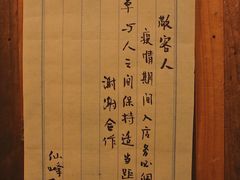 敬客人
疫情期间入店务必佩
罩与人之间保持适当距
谢谢合作
仙峰